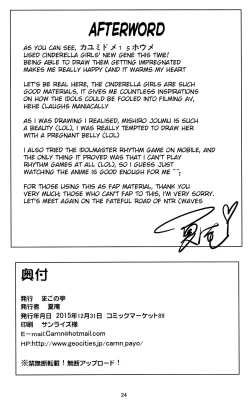 AFTERWORD
AS YOU CAN SEE, カユミドメ15ホウメ
USED CINDERELLA GIRLS' NEW GENE THIS TIME!
BEING ABLE TO DRAW THEM GETTING IMPREGNATED
MAKES ME REALLY HAPPY (AND IT WARMS MY HEART
LET'S BE REAL HERE, THE CINDERELLA GIRLS ARE SUCH
GOOD MATERIALS, IT GIVES ME COUNTLESS INSPIRATIONS
ON HOW THE IDOLS COULD BE FOOLED INTO FILMING AV,
HEHE (LAUGHS MANIACALLY
AS I WAS DRAWING I REALISED, MISHIRO JOUMU IS SUCH
A BEAUTY (LOL), I WAS REALLY TEMPTED TO DRAW HER
WITH A PREGNANT BELLY (LOL)
I ALSO TRIED THE IDOLMASTER RHYTHM GAME ON MOBILE, AND
THE ONLY THING IT PROVED WAS THAT I CAN'T PLAY
RHYTHM GAMES AT ALL (LOL), SO I GUESS JUST
WATCHING THE ANIME IS GOOD ENOUGH FOR ME ^^;
FOR THOSE USING THIS AS FAP MATERIAL, THANK YOU
VERY MUCH; THOSE WHO CAN'T FAP TO THIS, I'M VERY SORRY.
LET'S MEET AGAIN ON THE FATEFUL ROAD OF NTR (WAVES
夏庵
奥付
発行 まごの亭
発行者 夏庵
発行年月日 2015年12月31日 コミックマーケット89
印刷 サンライズ様
E-mail:Carn@hotmail.com
HP:http://www.geocities.jp/carnn_payo/
※禁無断転載!無断アップロード!
24